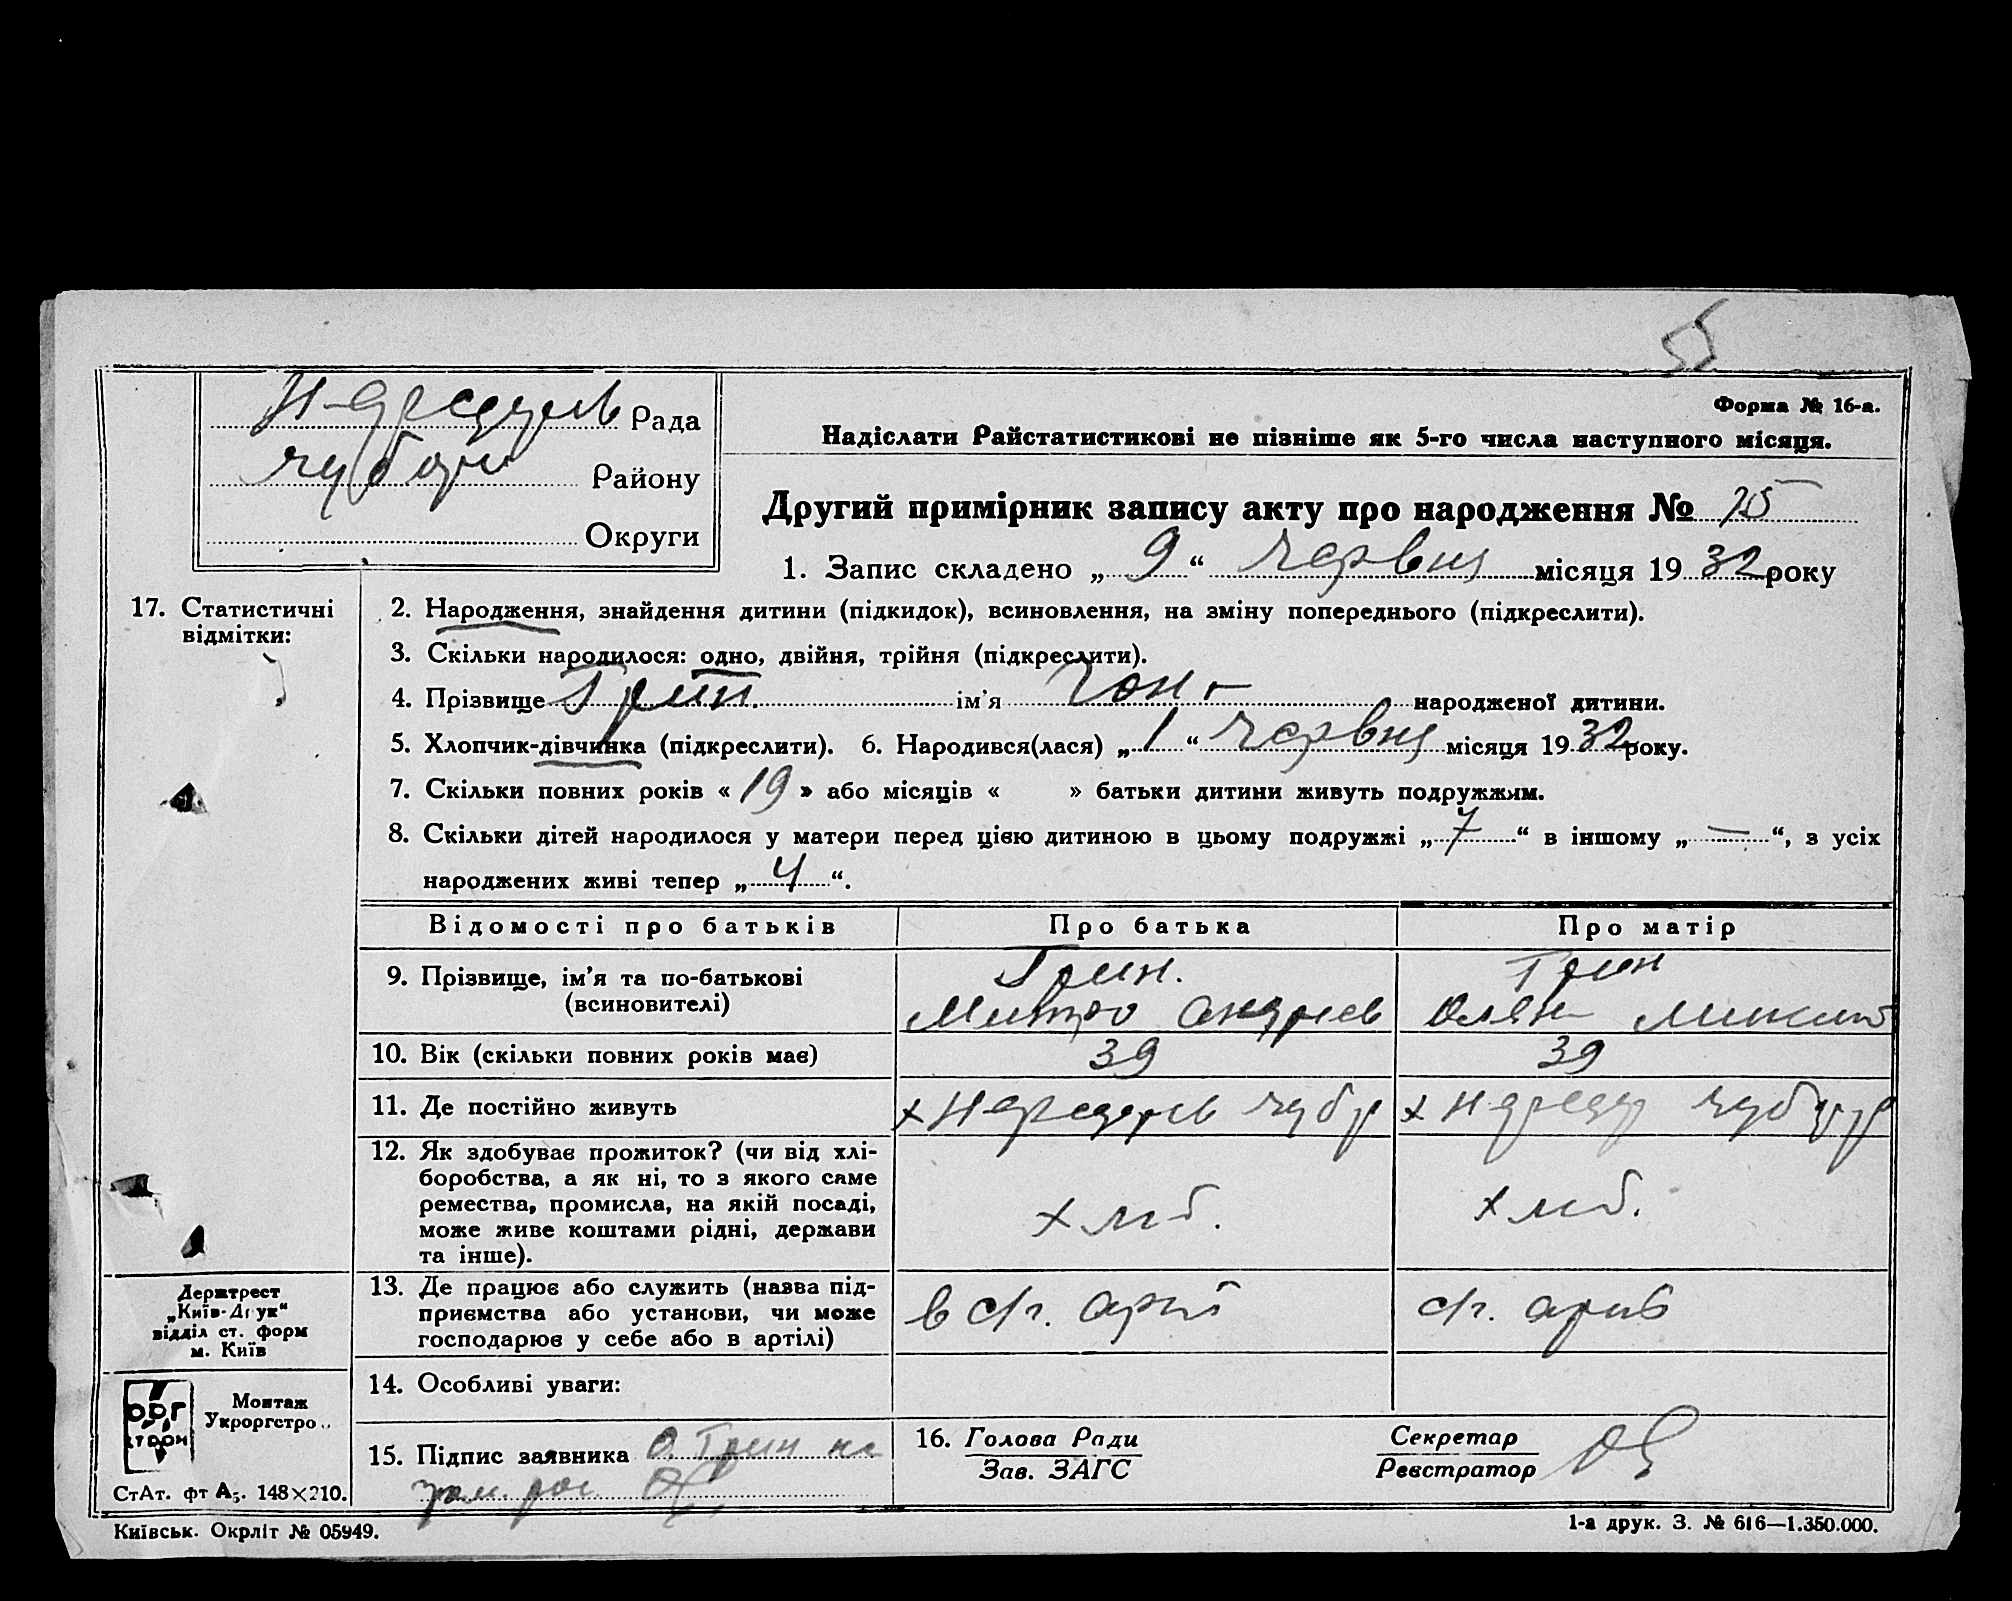 5
Форма № 16-а.
Рада
Надіслати Райстатистикові не пізніше як 5-го числа наступного місяця.
Району
Округи
Другий примірник запису акту про народження № 75
1. Запис складено „ 9 “ червня місяця 19 32 року
17. Статистичні
відмітки:
2. Народження, знайдення дитини (підкидок), всиновлення, на зміну попереднього (підкреслити).
3. Скільки народилося: одно, двійня, трійня (підкреслити).
4. Прізвище Грин. ім'я народженої дитини.
5. Хлопчик-дівчинка (підкреслити). 6. Народився(лася) „ 1 “ червня місяця 19 32 року.
7. Скільки повних років « 19 » або місяців « » батьки дитини живуть подружжям.
8. Скільки дітей народилося у матери перед цією дитиною в цьому подружжі „ 7 “ в іншому „ — “, з усіх
народжених живі тепер „ 4 “.
Відомості про батьків Про батька Про матір
9. Прізвище, ім'я та по-батькові
(всиновителі)
Грин.
Митро Андрієв
Грин
10. Вік (скільки повних років має) 39 39
11. Де постійно живуть
12. Як здобуває прожиток? (чи від хлі-
боробства, а як ні, то з якого саме
ремества, промисла, на якій посаді,
може живе коштами рідні, держави
та інше).
хліб.
хліб.
13. Де працює або служить (назва під-
приємства або установи, чи може
господарює у себе або в артілі)
в с/г. арті
с/г. артів
14. Особливі уваги:
15. Підпис заявника О. Грин не
16. Голова Ради
Зав. ЗАГС
Секретар
Реєстратор
Держтрест
„Київ-Друк“
відділ ст. форм
м. Київ
ОРГ
Монтаж
Укроргстро..
СтАт. фт А5. 148×210.
Київськ. Окрліт № 05949.
1-а друк. З. № 616—1.350.000.